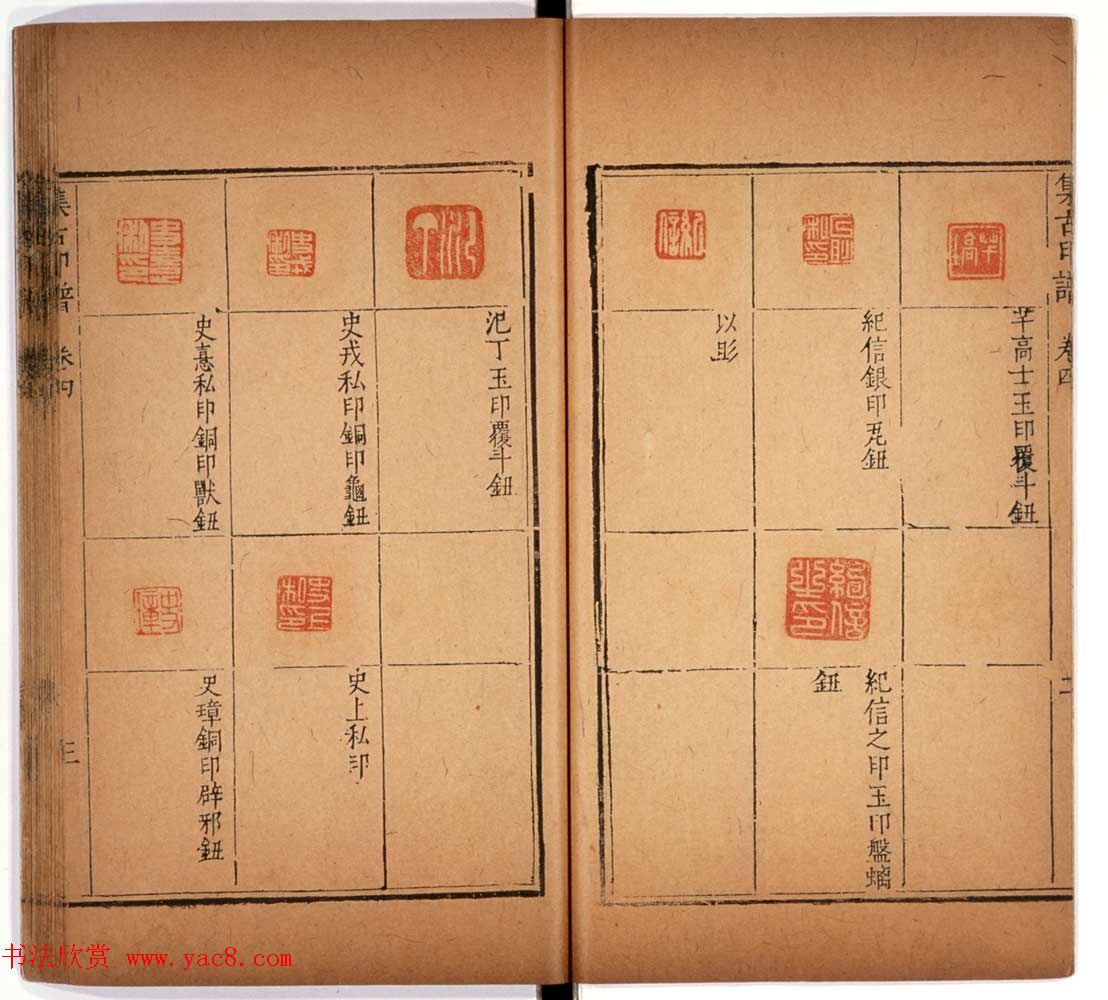 集古印譜 卷四
二
芉高士玉印覆斗鈕
紀信銀印瓦鈕
以彤
紀信之印玉印盤螭
鈕
氾丁玉印覆斗鈕
史戎私印銅印龜鈕
史意私印銅印獸鈕
史上私印
史璋銅印辟邪鈕
集古印譜 卷四
三
书法欣赏 www.yac8.com